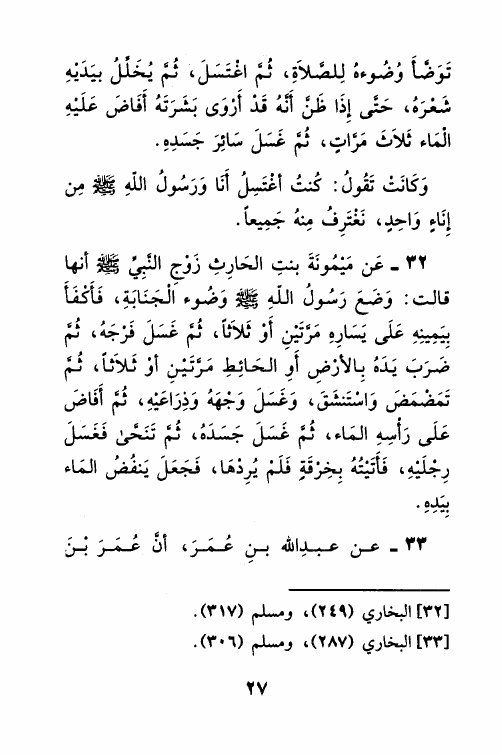 تَوَضَّأَ وُضُوءهُ لِلصَّلاَةِ، ثُمَّ اغْتَسَلَ، ثُمَّ يُخَلِّلُ بيَدَيْهِ
شَعْرَهُ، حَتَّى إِذَا ظَنَّ أَنَّهُ قَدْ أَرْوَى بَشَرَتَهُ أَفَاضَ عَلَيْهِ
الْمَاء ثَلاَثَ مَرَّاتٍ، ثُمَّ غَسَلَ سَائِرَ جَسَدِهِ.
وَكَانَتْ تَقُولُ: كُنتُ أَغْتَسِلُ أَنَا وَرَسُولُ اللهِ ﷺ مِن
إِنَاءٍ وَاحِدٍ، نَغْتَرِفُ مِنهُ جَمِيعاً.
٣٢ ـ عَن مَيْمُونَةَ بنتِ الحَارِثِ زَوْجِ النَّبيِّ ﷺ أنها
قالت: وَضَعَ رَسُولُ اللهِ ﷺ وَضُوء الْجَنَابَةِ، فَأَكْفَأَ
بيَمِينِهِ عَلَى يَسَارِهِ مَرَّتَيْنِ أَوْ ثَلاَثاً، ثُمَّ غَسَلَ فَرْجَهُ، ثُمَّ
ضَرَبَ يَدَهُ بِالأَرْضِ أَوِ الحَائِطِ مَرَّتَيْنِ أوْ ثَلاَثاً، ثُمَّ
تَمَضْمَضَ وَاسْتَنشَقَ، وَغَسَلَ وَجْهَهُ وَذِرَاعَيْهِ، ثُمَّ أَفَاضَ
عَلَى رَأْسِهِ المَاء، ثُمَّ غَسَلَ جَسَدَهُ، ثُمَّ تَنَحَّىٰ فَغَسَلَ
رِجْلَيْهِ، فَأَتَيْتُهُ بِخِرْقَةٍ فَلَمْ يُرِدْهَا، فَجَعَلَ يَنفُضُ المَاء
بِيَدِهِ.
٣٣ ـ عـن عـبـدِالله بـنِ عُـمَـرَ، أنَّ عُـمَـرَ بْـنَ
[٣٢] البخاري (٢٤٩)، ومسلم (٣١٧).
[٣٣] البخاري (٢٨٧)، ومسلم (٣٠٦).
٢٧